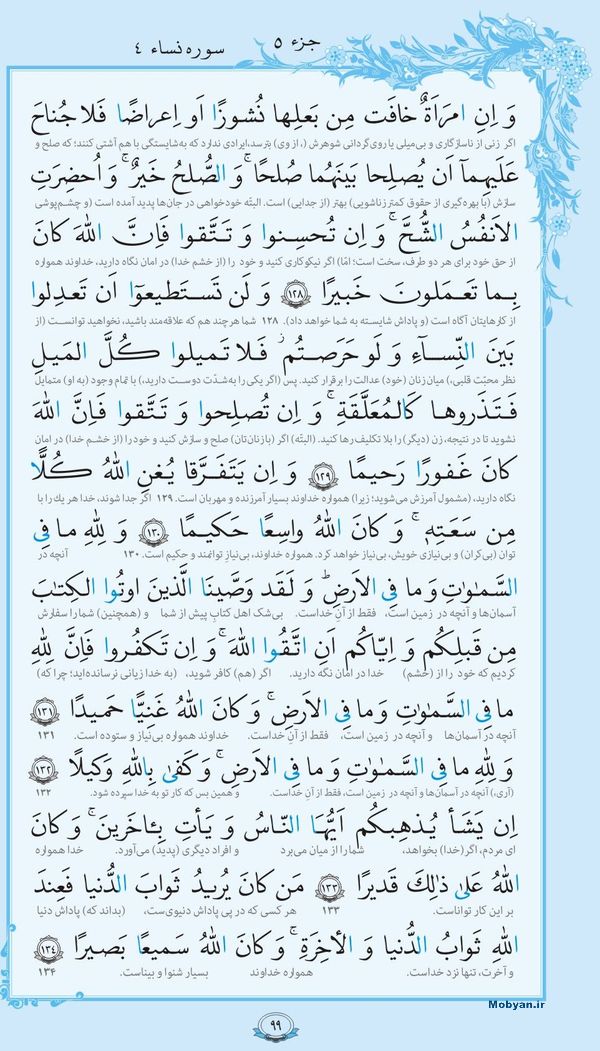 جزء ٥
سوره نساء ٤
وَ اِنِ امرَاَةٌ خافَت مِن بَعلِها نُشوزًا اَو اِعراضًا فَلا جُناحَ
اگر زنی از ناسازگاری و بی‌میلی یا روی‌گردانی شوهرش (، از وی) بترسد، ایرادی ندارد که به‌شایستگی با هم آشتی کنند؛ که صلح و
عَلَيهِمآ اَن يُصلِحا بَينَهُما صُلحًا ۚ وَ الصُّلحُ خَيرٌ ۗ وَ اُحضِرَتِ
سازش (با بهره‌گیری از حقوق کمتر زناشویی) بهتر (از جدایی) است. البتّه خودخواهی در جان‌ها پدید آمده است (و چشم‌پوشی
الاَنفُسُ الشُّحَّ ۚ وَ اِن تُحسِنوا وَ تَتَّقوا فَاِنَّ اللهَ كانَ
از حق خود برای هر دو طرف، سخت است؛ امّا) اگر نیکوکاری کنید و خود را (از خشم خدا) در امان نگاه دارید، خداوند همواره
بِما تَعمَلونَ خَبيرًا ﴿١٢٨﴾ وَ لَن تَستَطيعوٓا اَن تَعدِلوا
از کارهایتان آگاه است (و پاداش شایسته به شما خواهد داد). ۱۲۸ شما هرچند هم که علاقه‌مند باشید، نخواهید توانست (از
بَينَ النِّسآءِ وَ لَو حَرَصتُم ۖ فَلا تَميلوا كُلَّ المَيلِ
نظر محبّت قلبی،) میان زنان (خود) عدالت را برقرار کنید. پس (اگر یکی را به‌شدّت دوست دارید،) با تمام وجود (به او) متمایل
فَتَذَروها كَالمُعَلَّقَةِ ۚ وَ اِن تُصلِحوا وَ تَتَّقوا فَاِنَّ اللهَ
نشوید تا در نتیجه، زن (دیگر) را بلا تکلیف رها کنید. (البتّه) اگر (با زنان‌تان) صلح و سازش کنید و خود را (از خشم خدا) در امان
كانَ غَفورًا رَحيمًا ﴿١٢٩﴾ وَ اِن يَتَفَرَّقا يُغنِ اللهُ كُلًّا
نگاه دارید، (مشمول آمرزش می‌شوید؛ زیرا) همواره خداوند بسیار آمرزنده و مهربان است. ۱۲۹ اگر جدا شوند، خدا هر یك را با
مِن سَعَتِهٖ ۚ وَ كانَ اللهُ واسِعًا حَكيمًا ﴿١٣٠﴾ وَ لِلّٰهِ ما فِي
توان (بی‌کران) و بی‌نیازی خویش، بی‌نیاز خواهد کرد. همواره خداوند، بی‌نیازِ توانمند و حکیم است. ۱۳۰ آنچه در
السَّمٰوٰتِ وَ ما فِي الاَرضِ ۗ وَ لَقَد وَصَّينَا الَّذينَ اوتُوا الكِتٰبَ
آسمان‌ها و آنچه در زمین است، فقط از آنِ خداست. بی‌شک اهل کتابِ پیش از شما و (همچنین) شما را سفارش
مِن قَبلِكُم وَ اِيّاكُم اَنِ اتَّقُوا اللهَ ۚ وَ اِن تَكفُروا فَاِنَّ لِلّٰهِ
کردیم که خود را از (خشم) خدا در امان نگه دارید. اگر (هم) کافر شوید، (به خدا زیانی نرسانده‌اید؛ چرا که)
ما فِي السَّمٰوٰتِ وَ ما فِي الاَرضِ ۚ وَ كانَ اللهُ غَنِيًّا حَميدًا ﴿١٣١﴾
آنچه در آسمان‌ها و آنچه در زمین است، فقط از آنِ خداست. خداوند همواره بی‌نیاز و ستوده است. ۱۳۱
وَ لِلّٰهِ ما فِي السَّمٰوٰتِ وَ ما فِي الاَرضِ ۚ وَ كَفىٰ بِاللهِ وَكيلًا ﴿١٣٢﴾
(آری،) آنچه در آسمان‌ها و آنچه در زمین است، فقط از آنِ خداست. و همین بس که کار تو به خدا سپرده شود. ۱۳۲
اِن يَشَأ يُذهِبكُم اَيُّهَا النّاسُ وَ يَأتِ بِئاخَرينَ ۚ وَ كانَ
ای مردم، اگر (خدا) بخواهد، شما را از میان می‌برد و افراد دیگری (پدید) می‌آورد. خدا همواره
اللهُ عَلىٰ ذٰلِكَ قَديرًا ﴿١٣٣﴾ مَن كانَ يُريدُ ثَوابَ الدُّنيا فَعِندَ
بر این کار تواناست. ۱۳۳ هر کسی که در پی پاداش دنیوی‌ست، (بداند که) پاداش دنیا
اللهِ ثَوابُ الدُّنيا وَ الأخِرَةِ ۚ وَ كانَ اللهُ سَميعًا بَصيرًا ﴿١٣٤﴾
و آخرت، تنها نزد خداست. همواره خداوند بسیار شنوا و بیناست. ۱۳۴
Mobyan.ir
٩٩